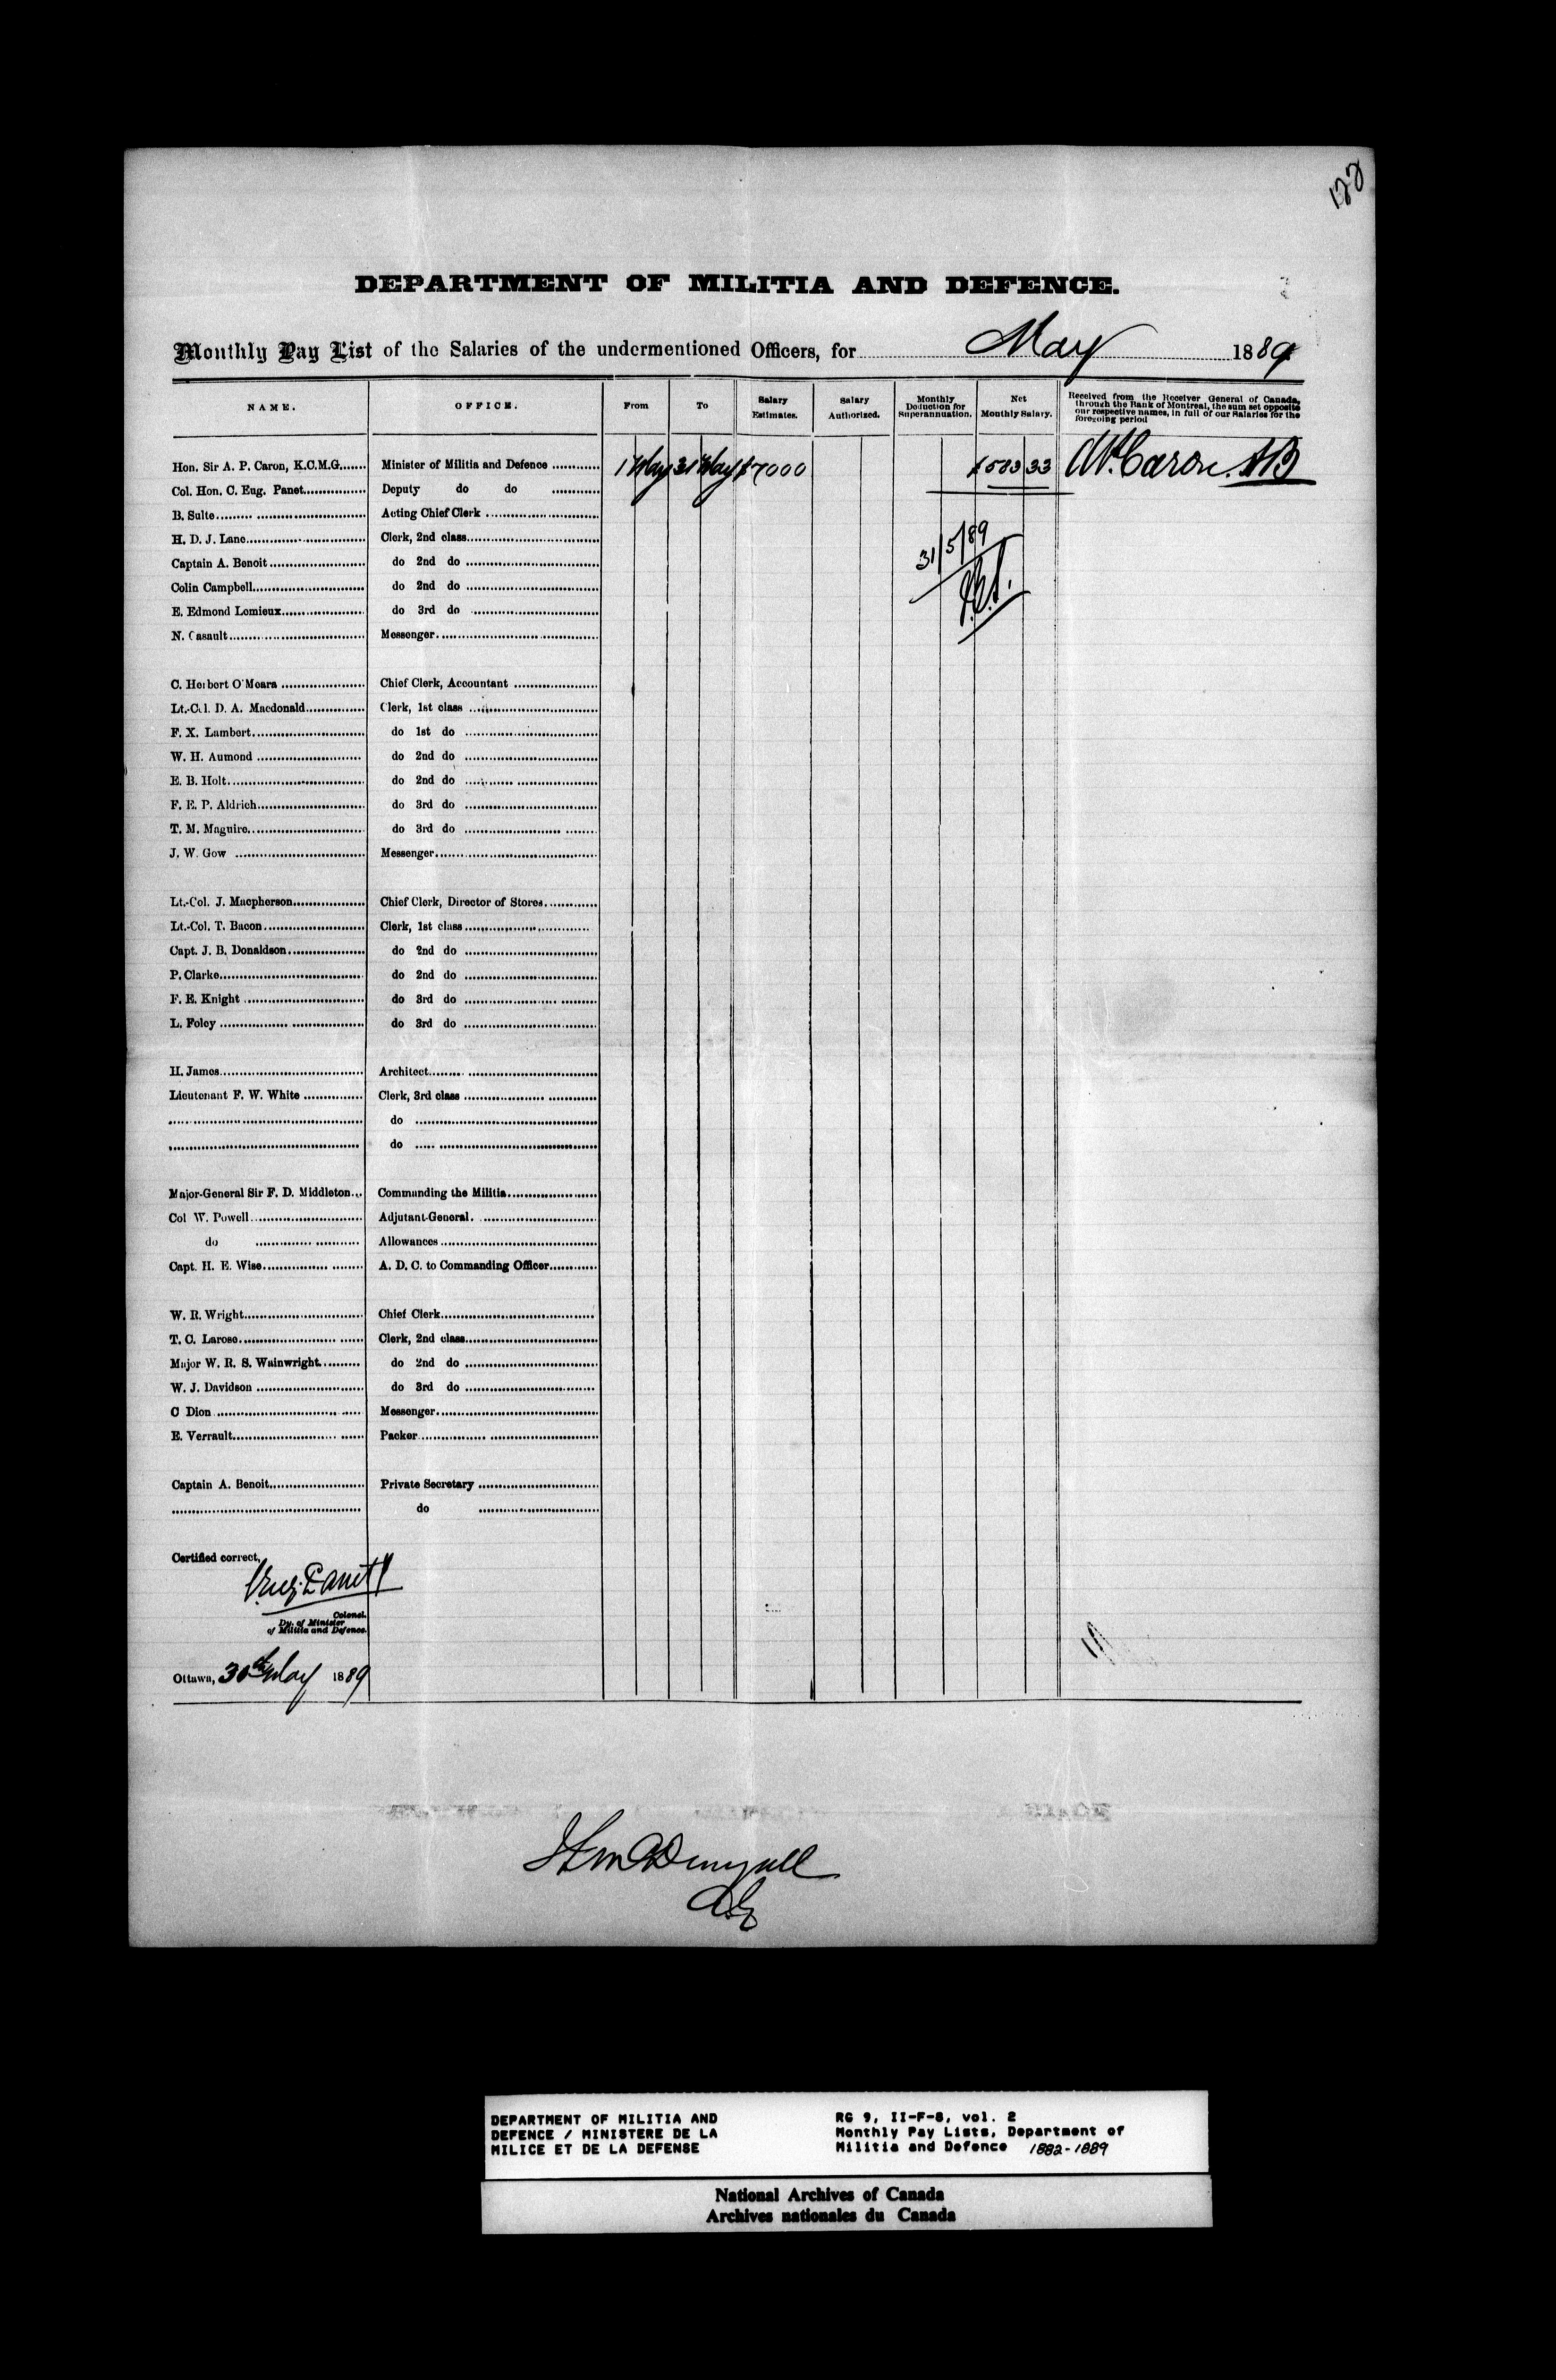 122
DEPARTMENT OF MILITIA AND DEFENCE.
Monthly Pay List of the Salaries of the undermentioned Officers, for May 1889
NAME. OFFICE. From To Salary Estimates. Salary Authorized. Monthly Deduction for Superannuation. Net Monthly Salary. Received from the Receiver General of Canada, through the Bank of Montreal, the sum set opposite our respective names, in full of our Salaries for the foregoing period
Hon. Sir A. P. Caron, K.C.M.G. Minister of Militia and Defence 1 May 31 May $7000 $583 33 A.P. Caron
Col. Hon. C. Eug. Panet Deputy do do
B. Sulte Acting Chief Clerk
H. D. J. Lane Clerk, 2nd class
31/5/89
Captain A. Benoit do 2nd do
Colin Campbell do 2nd do
E. Edmond Lemieux do 3rd do
N. Casault Messenger
C. Herbert O'Meara Chief Clerk, Accountant
Lt.-Col. D. A. Macdonald Clerk, 1st class
F. X. Lambert do 1st do
W. H. Aumond do 2nd do
E. B. Holt do 2nd do
F. E. P. Aldrich do 3rd do
T. M. Maguire do 3rd do
J. W. Gow Messenger
Lt.-Col. J. Macpherson Chief Clerk, Director of Stores
Lt.-Col. T. Bacon Clerk, 1st class
Capt. J. B. Donaldson do 2nd do
P. Clarke do 2nd do
F. E. Knight do 3rd do
L. Foley do 3rd do
H. James Architect
Lieutenant F. W. White Clerk, 3rd class
do
do
Major-General Sir F. D. Middleton Commanding the Militia
Col W. Powell Adjutant-General
do Allowances
Capt. H. E. Wise A. D. C. to Commanding Officer
W. R. Wright Chief Clerk
T. C. Larose Clerk, 2nd class
Major W. R. S. Wainwright do 2nd do
W. J. Davidson do 3rd do
C Dion Messenger
E. Verrault Packer
Captain A. Benoit Private Secretary
do
Certified correct,
C. Eug. Panet
Colonel.
Dy. of Minister
of Militia and Defence.
Ottawa, 30th May 1889
DEPARTMENT OF MILITIA AND
DEFENCE / MINISTERE DE LA
MILICE ET DE LA DEFENSE
RG 9, II-F-8, vol. 2
Monthly Pay Lists, Department of
Militia and Defence 1882-1889
National Archives of Canada
Archives nationales du Canada